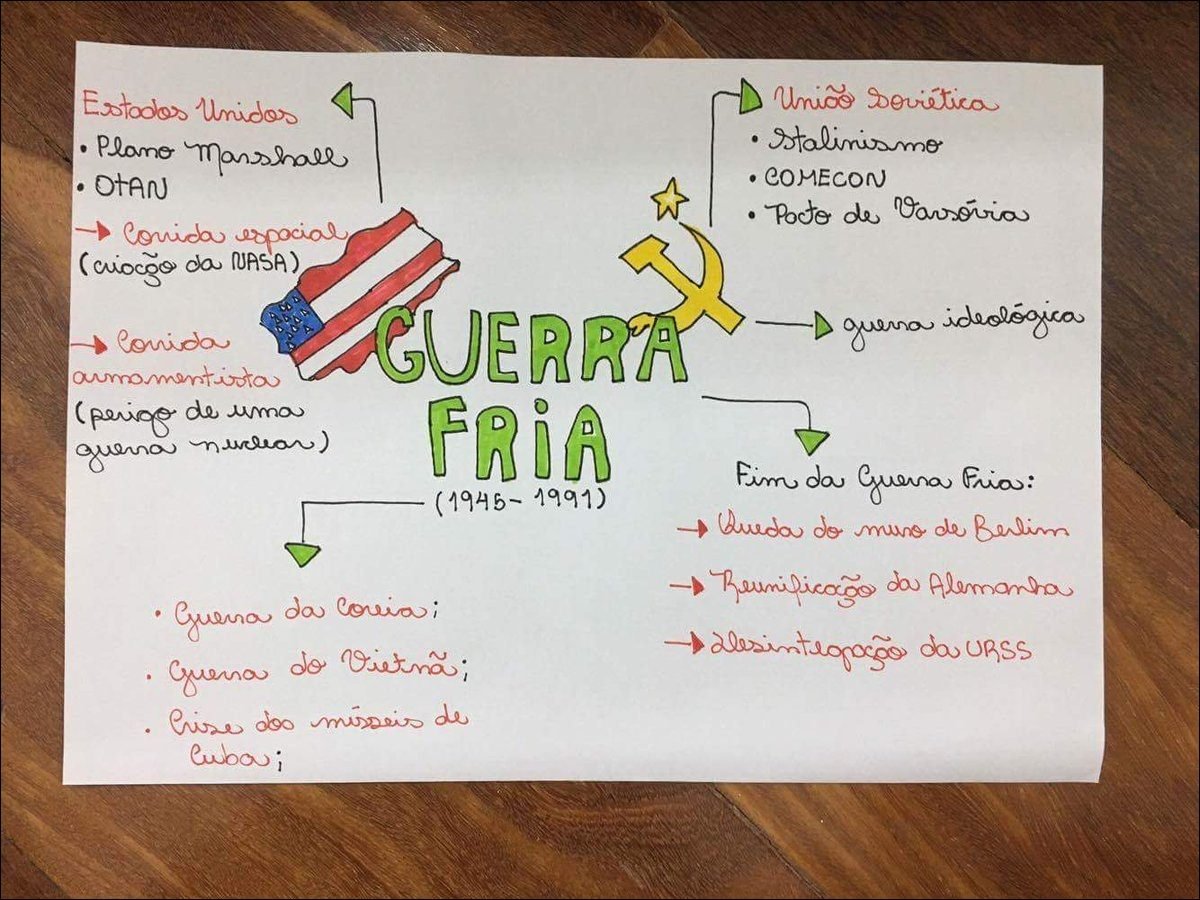 Estados Unidos
• Plano Marshall
• OTAN
→ Corrida espacial
(criação da NASA)
→ Corrida
armamentista
(perigo de uma
guerra nuclear)
União Soviética
• Stalinismo
• COMECON
• Pacto de Varsóvia
guerra ideológica
GUERRA
FRiA
(1945-1991)
Fim da Guerra Fria:
→ Queda do muro de Berlim
→ Reunificação da Alemanha
→ Desintegração da URSS
• Guerra da Coreia;
• Guerra do Vietnã;
• Crise dos mísseis de
Cuba;